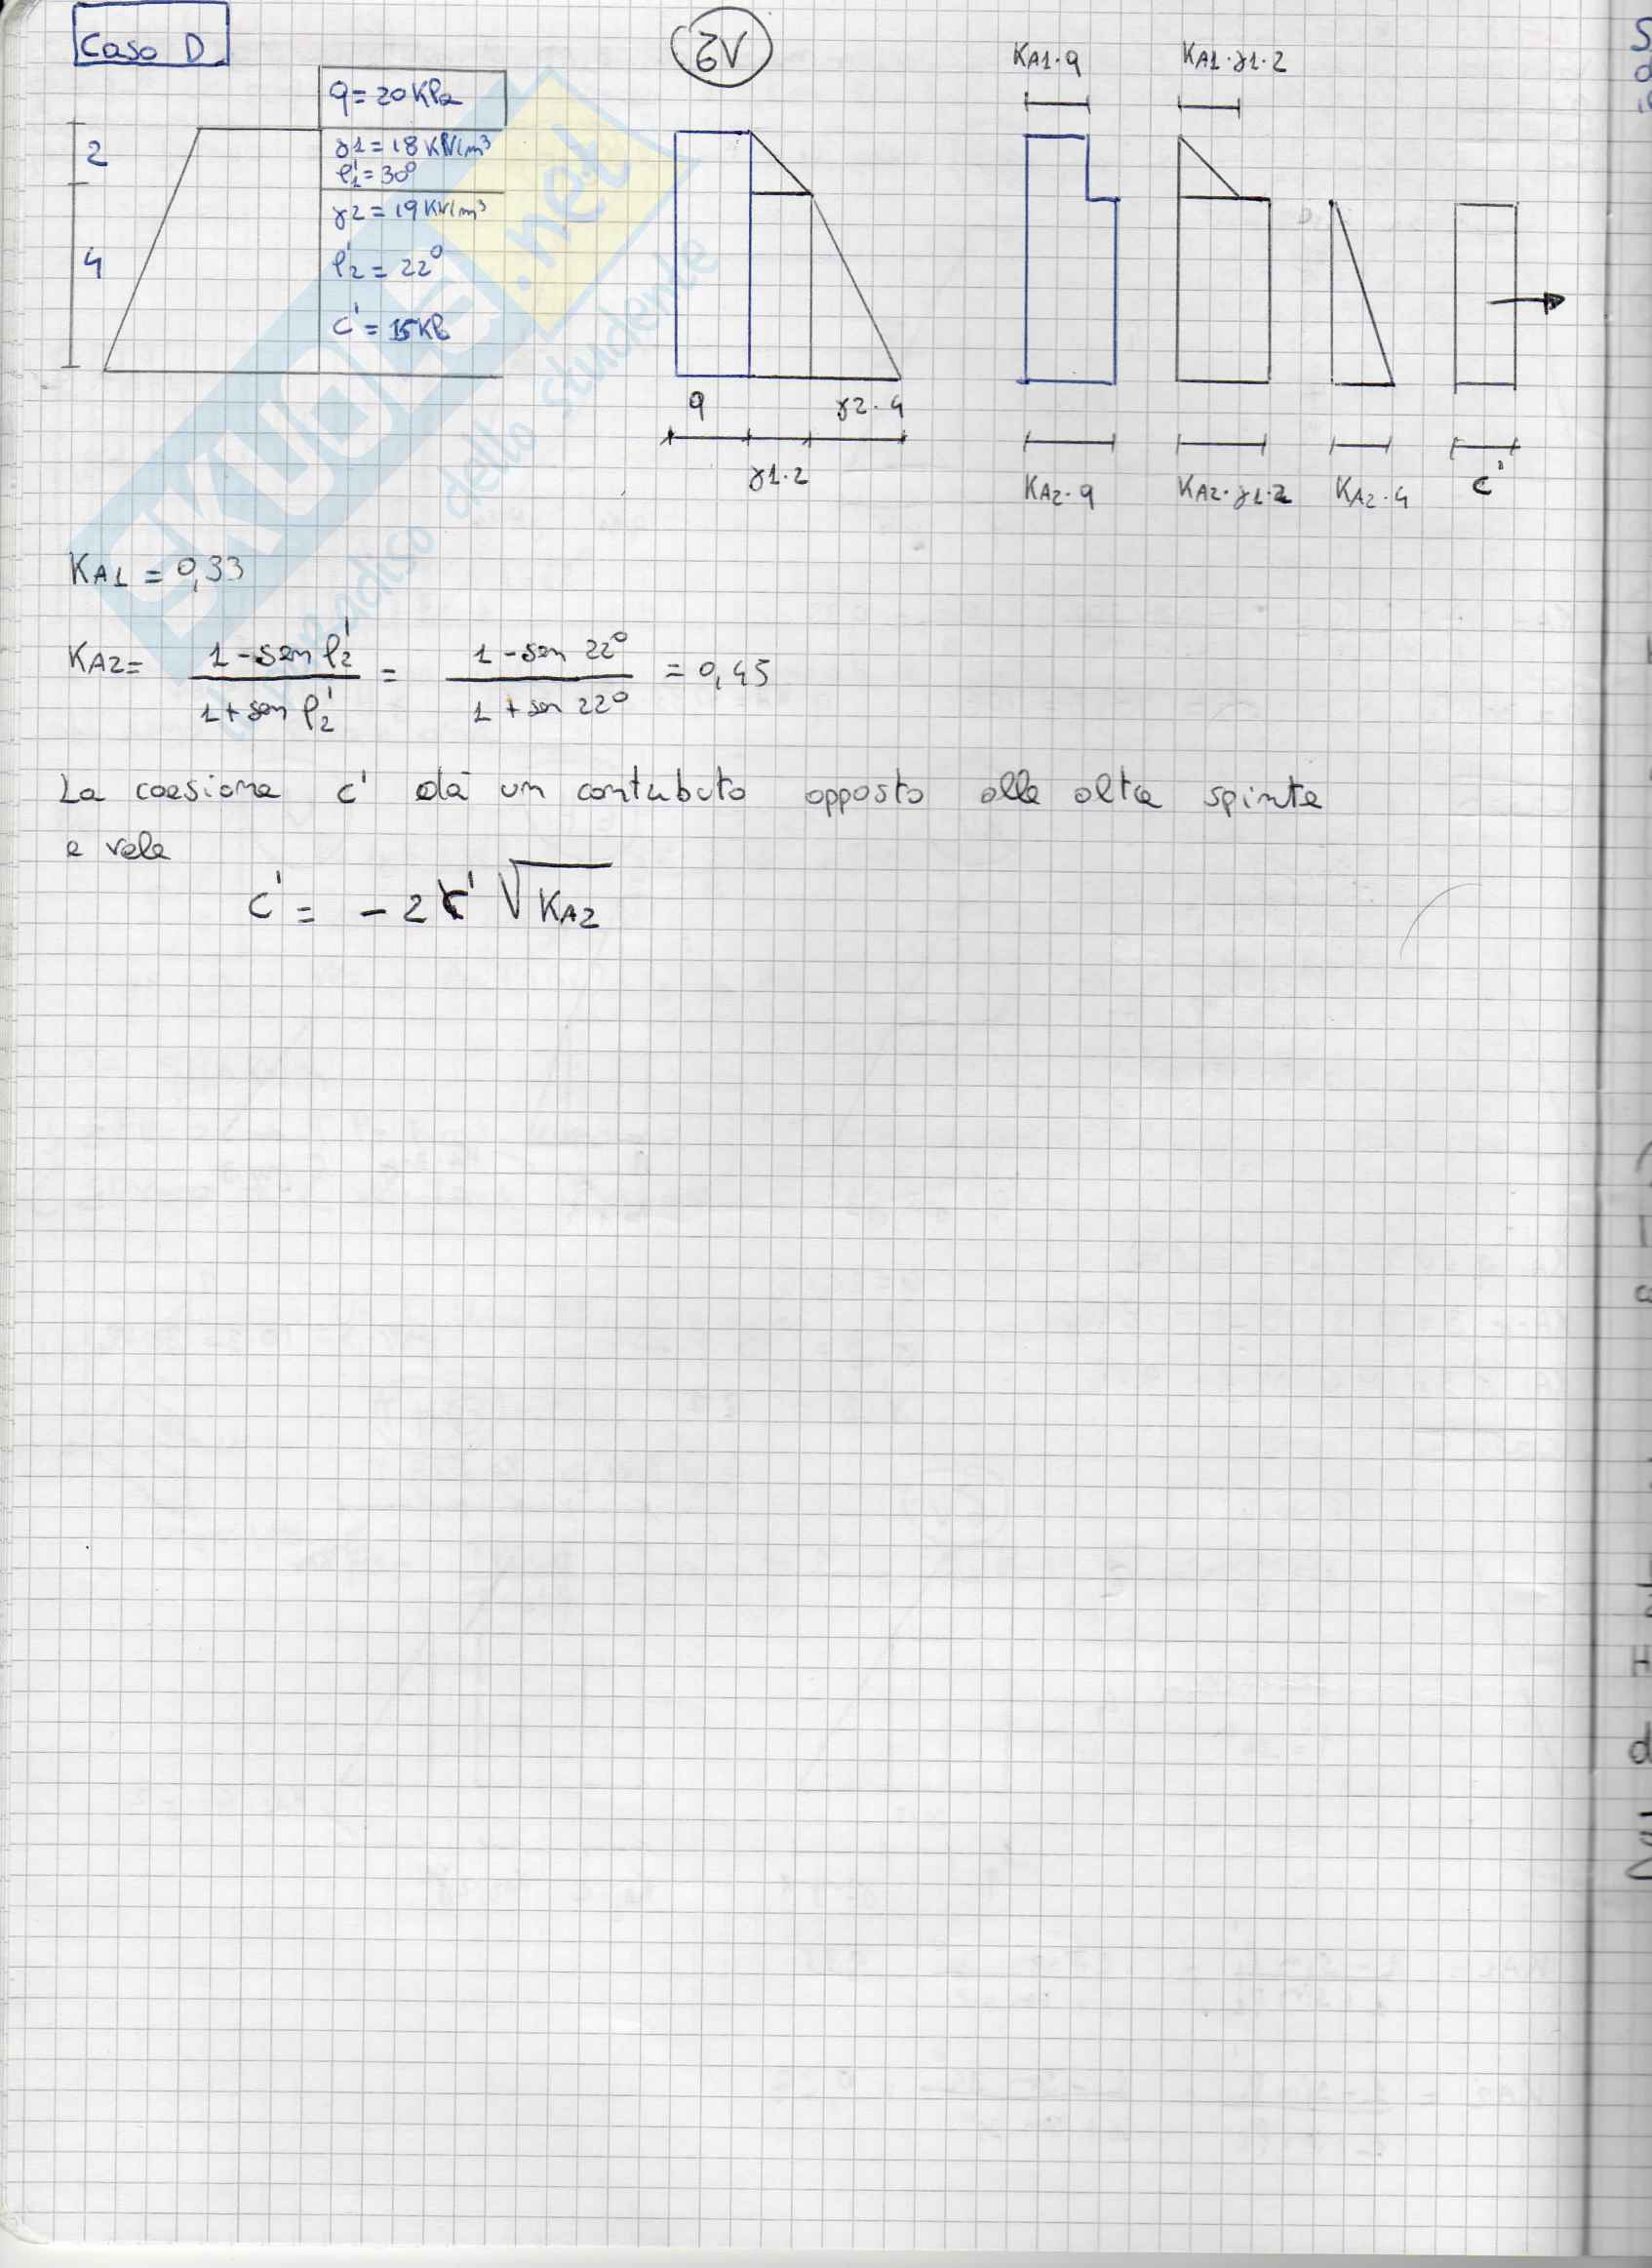 Caso D
q = 20 KPa
γ1 = 18 KN/m³
φ'1 = 30°
γ2 = 19 KN/m³
φ'2 = 22°
c' = 15 KPa
2
4
σv
q
γ2·4
γ1·2
KA1·q
KA1·γ1·2
KA2·q
KA2·γ1·2
KA2·4
c'
SKUOLA.net
il paradiso dello studente
KA1 = 0,33
KA2 = 1 - sen φ'2 / 1 + sen φ'2 = 1 - sen 22° / 1 + sen 22° = 0,45
La coesione c' dà un contributo opposto alle altre spinte
e vale
c' = - 2 c' √KA2